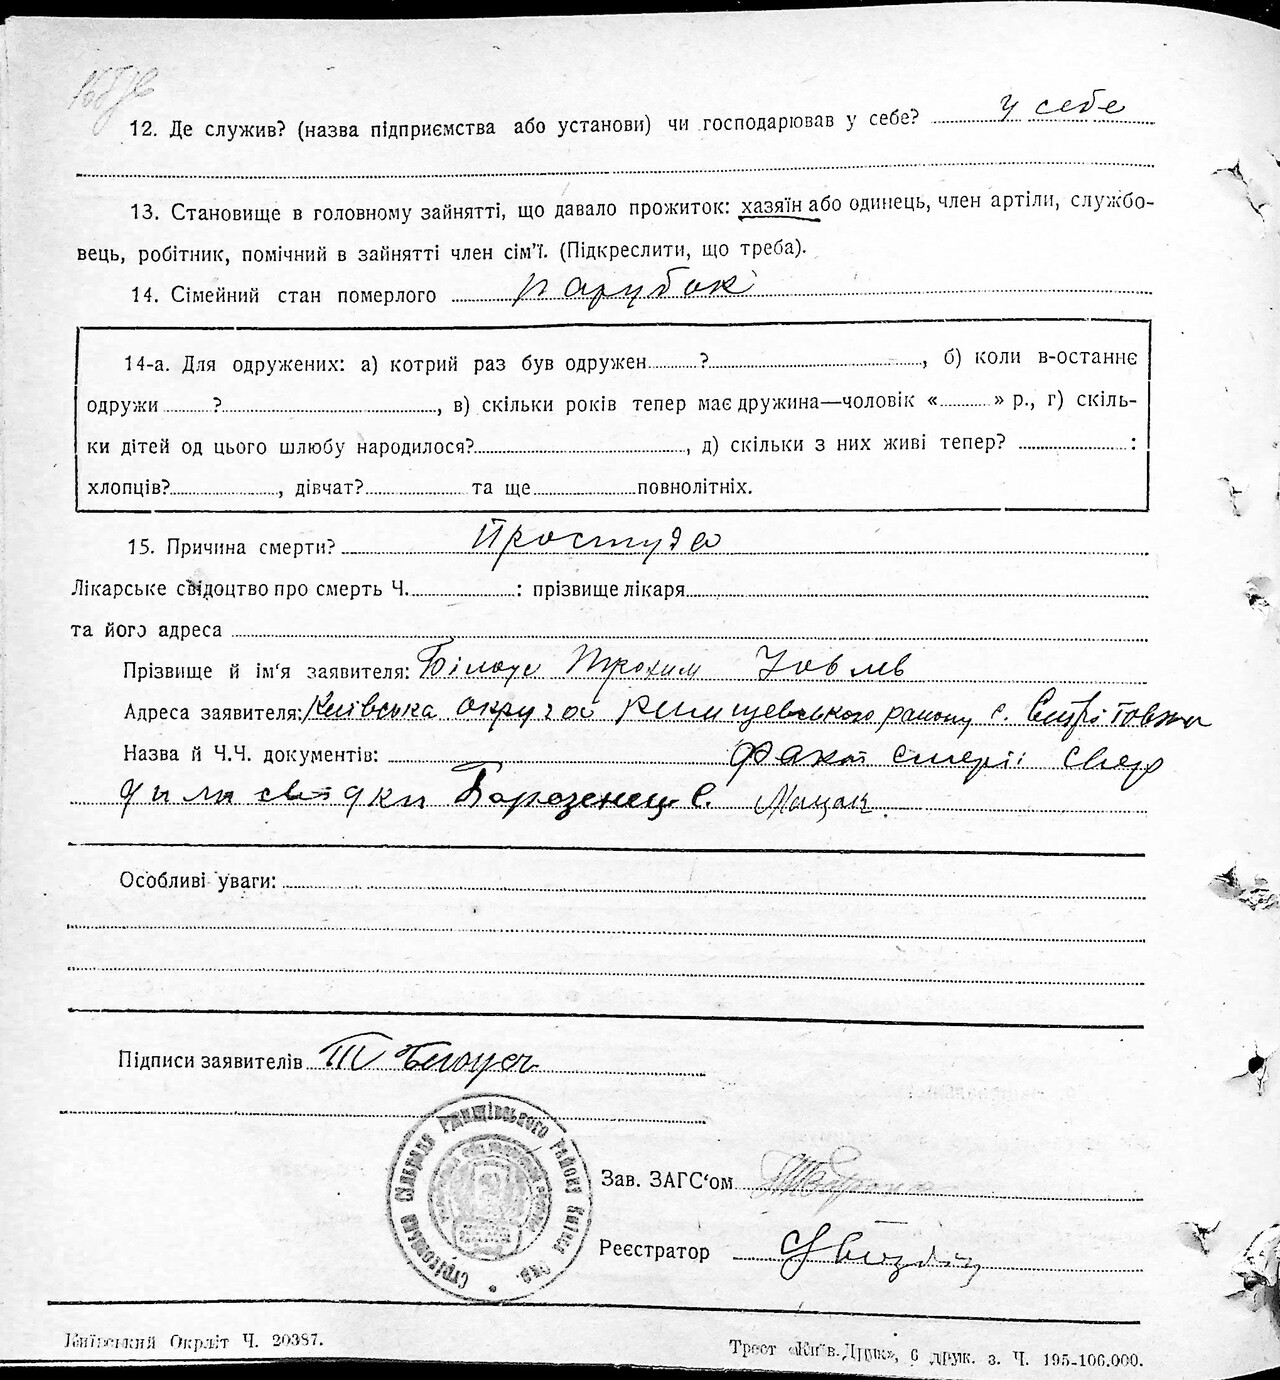 12. Де служив? (назва підприємства або установи) чи господарював у себе? у себе
13. Становище в головному зайнятті, що давало прожиток: хазяїн або одинець, член артіли, службо-
вець, робітник, помічний в зайнятті член сім'ї. (Підкреслити, що треба).
14. Сімейний стан померлого парубок
14-а. Для одружених: а) котрий раз був одружен ?, б) коли в-останнє
одружи ?, в) скільки років тепер має дружина—чоловік « » р., г) скіль-
ки дітей од цього шлюбу народилося?, д) скільки з них живі тепер? :
хлопців?, дівчат? та ще повнолітніх.
15. Причина смерти? Простуда
Лікарське свідоцтво про смерть Ч. : прізвище лікаря
та його адреса
Прізвище й ім'я заявителя: Білоус Трохим
Адреса заявителя: Київська округа району с.
Назва й Ч.Ч. документів: Факт смерті свер
дили свідки Борозенець С. Мацак.
Особливі уваги:
Підписи заявителів Т Белоус
Стрітовська Сільрада Ржищівського району Київськ Окр.
Зав. ЗАГС'ом
Реєстратор
Київський Окрліт Ч. 20387.
Трест «Київ-Друк», 6 друк. з. Ч. 195-106.000.